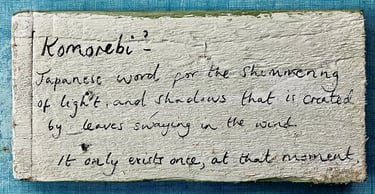 'Komorebi'?
Japanese word for the shimmering
of light, and shadows that is created
by leaves swaying in the wind.
It only exists once, at that moment.